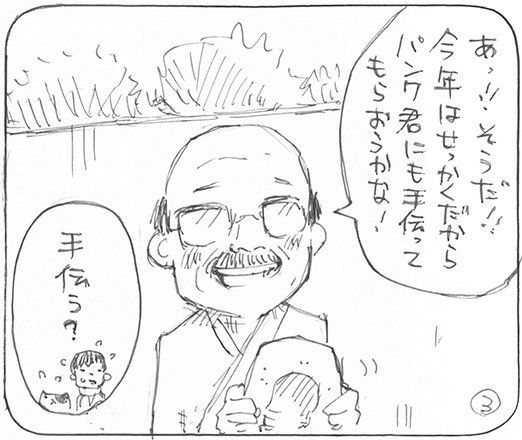 あっ!!そうだ!!
今年はせっかくだから
パンク君にも手伝って
もらおうかな!
手伝う?
3